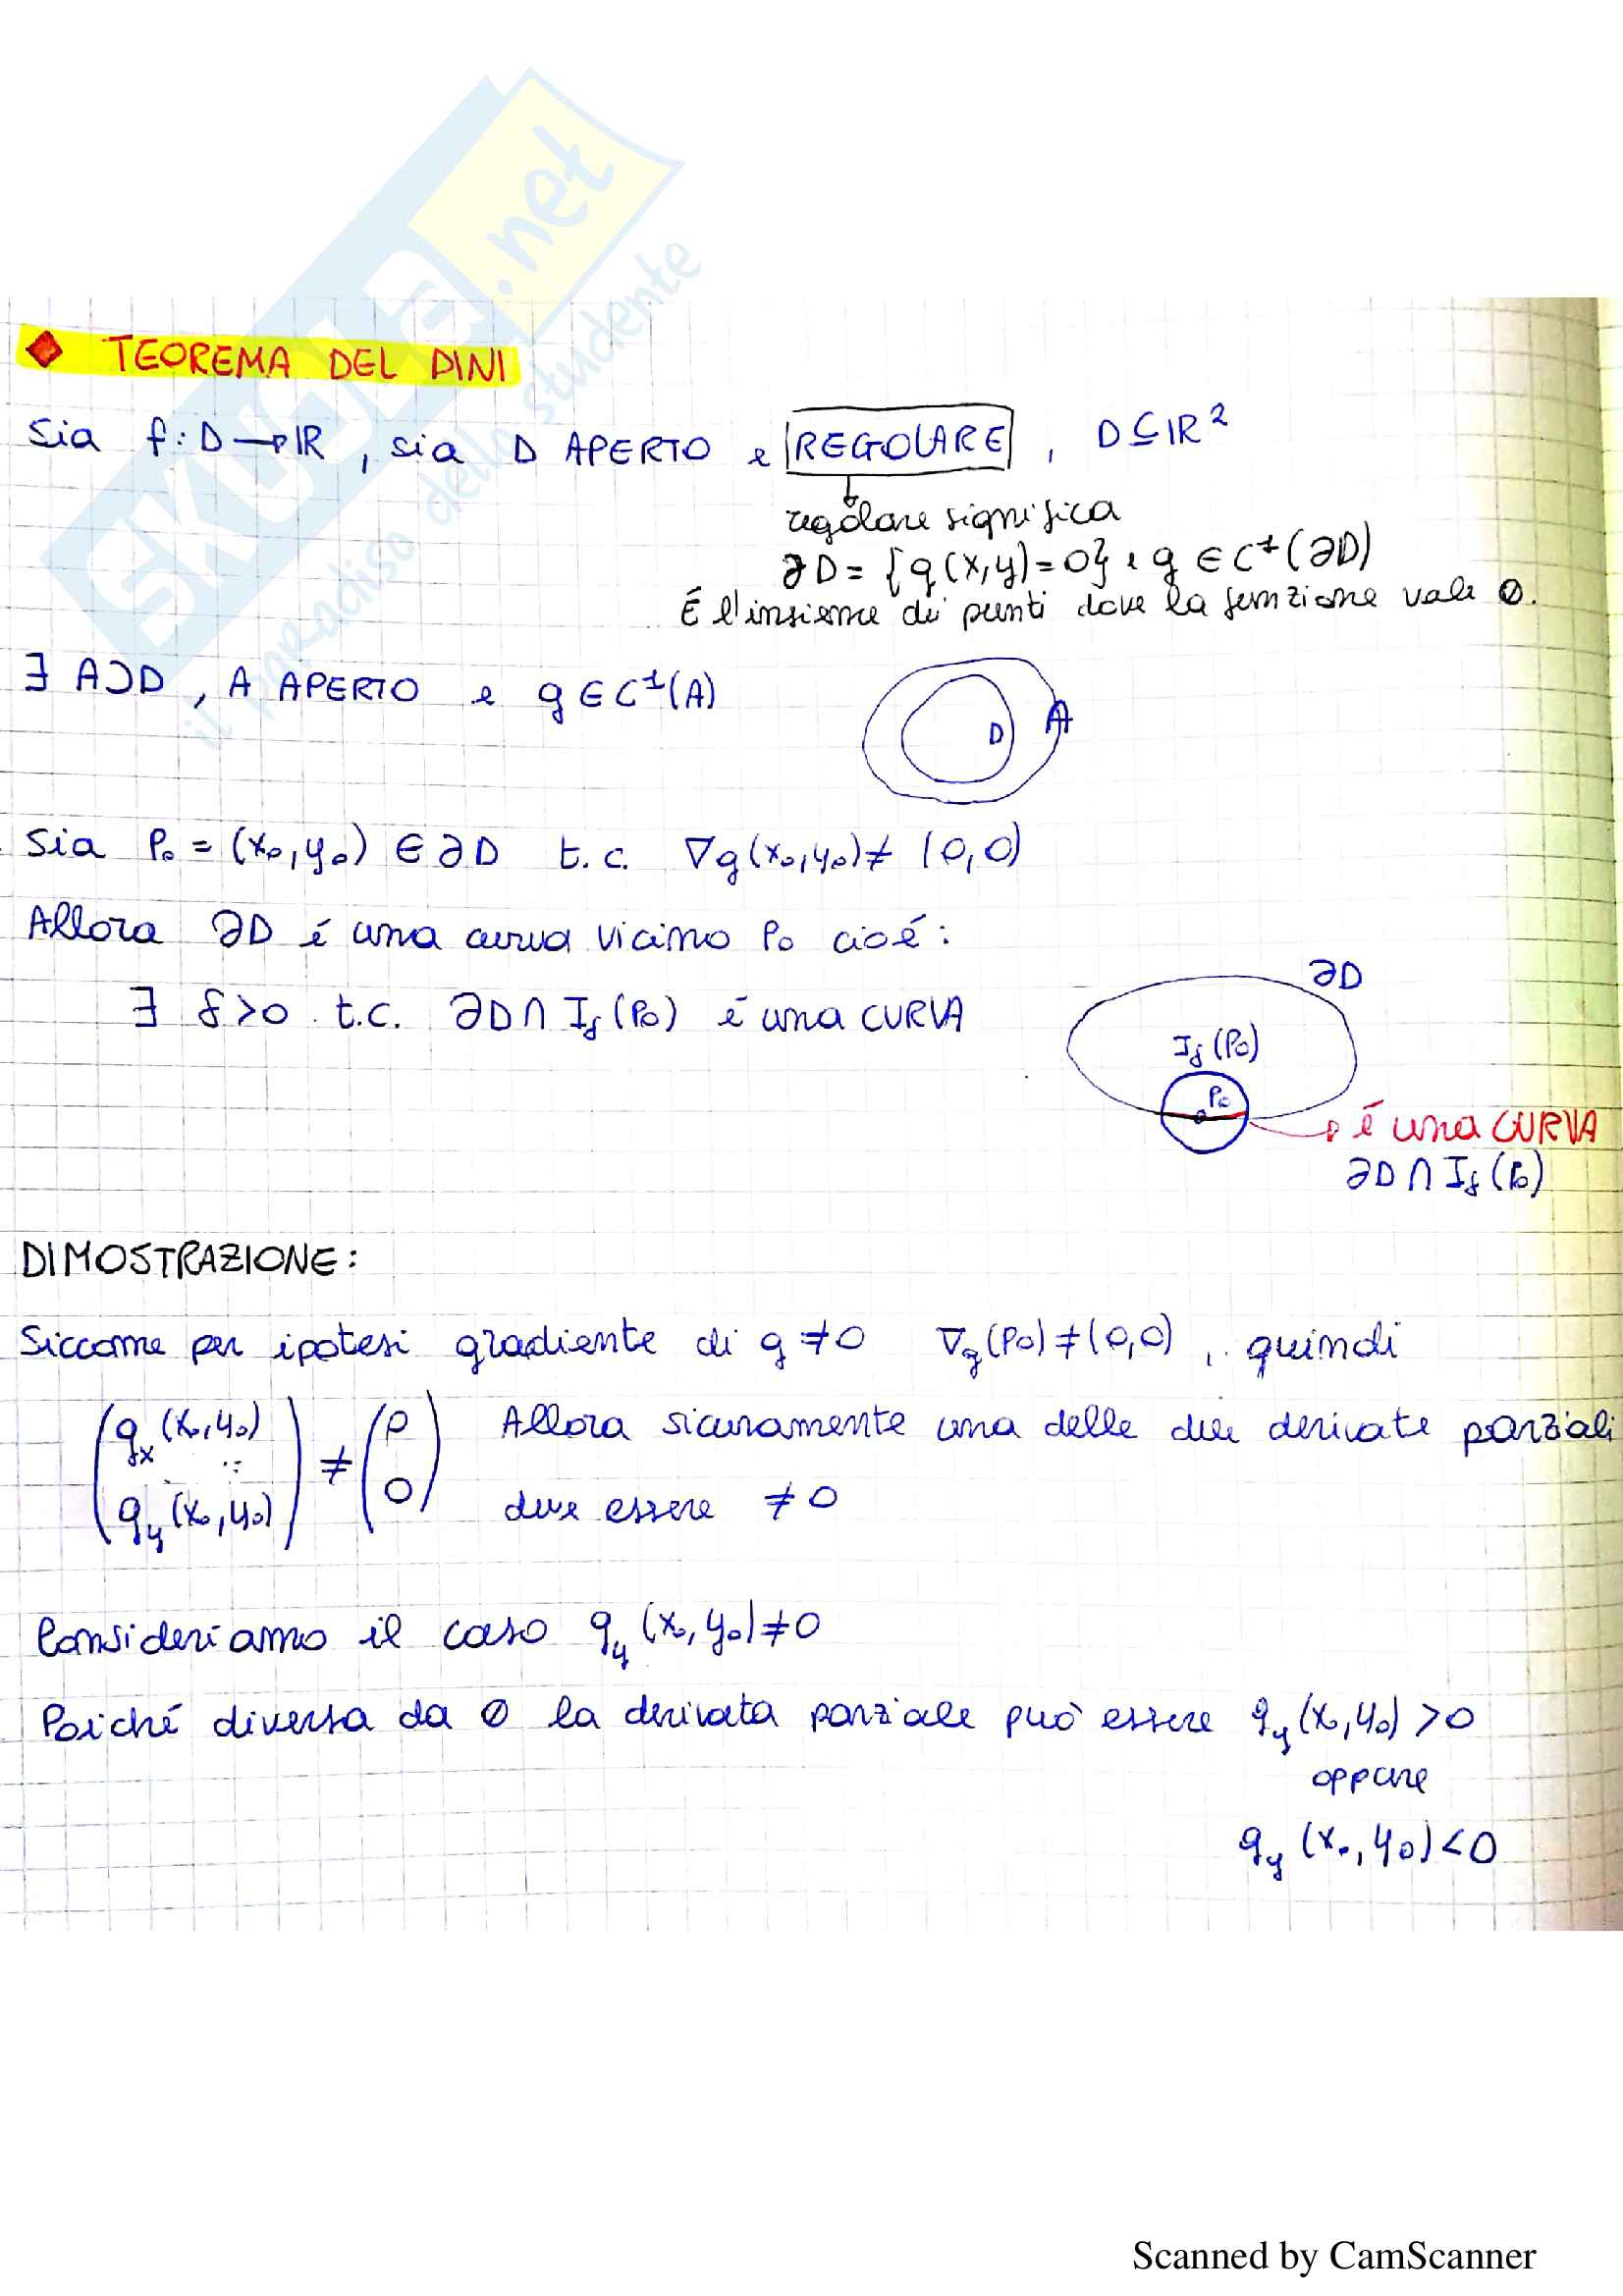 SKUOLA.net
il paradiso dello studente
TEOREMA DEL DINI
Sia f: D → ℝ, sia D APERTO e REGOLARE, D ⊆ ℝ²
regolare significa
∂D = {g(x,y)=0} e g ∈ C¹(∂D)
É l'insieme dei punti dove la funzione vale 0.
∃ A⊃D, A APERTO e g ∈ C¹(A)
D A
Sia P₀ = (x₀,y₀) ∈ ∂D t.c. ∇g(x₀,y₀) ≠ (0,0)
Allora ∂D é una curva vicino P₀ cioé:
∂D
∃ δ>0 t.c. ∂D ∩ I_δ(P₀) é una CURVA
I_δ(P₀)
P₀
é una CURVA
∂D ∩ I_δ(P₀)
DIMOSTRAZIONE:
Siccome per ipotesi gradiente di g ≠ 0 ∇g(P₀) ≠ (0,0), quindi
(g_x(x₀,y₀) g_y(x₀,y₀)) ≠ (0 0) Allora sicuramente una delle due derivate parziali
deve essere ≠ 0
Consideriamo il caso g_y(x₀,y₀) ≠ 0
Poiché diversa da 0 la derivata parziale può essere g_y(x₀,y₀) > 0
oppure
g_y(x₀,y₀) < 0
Scanned by CamScanner